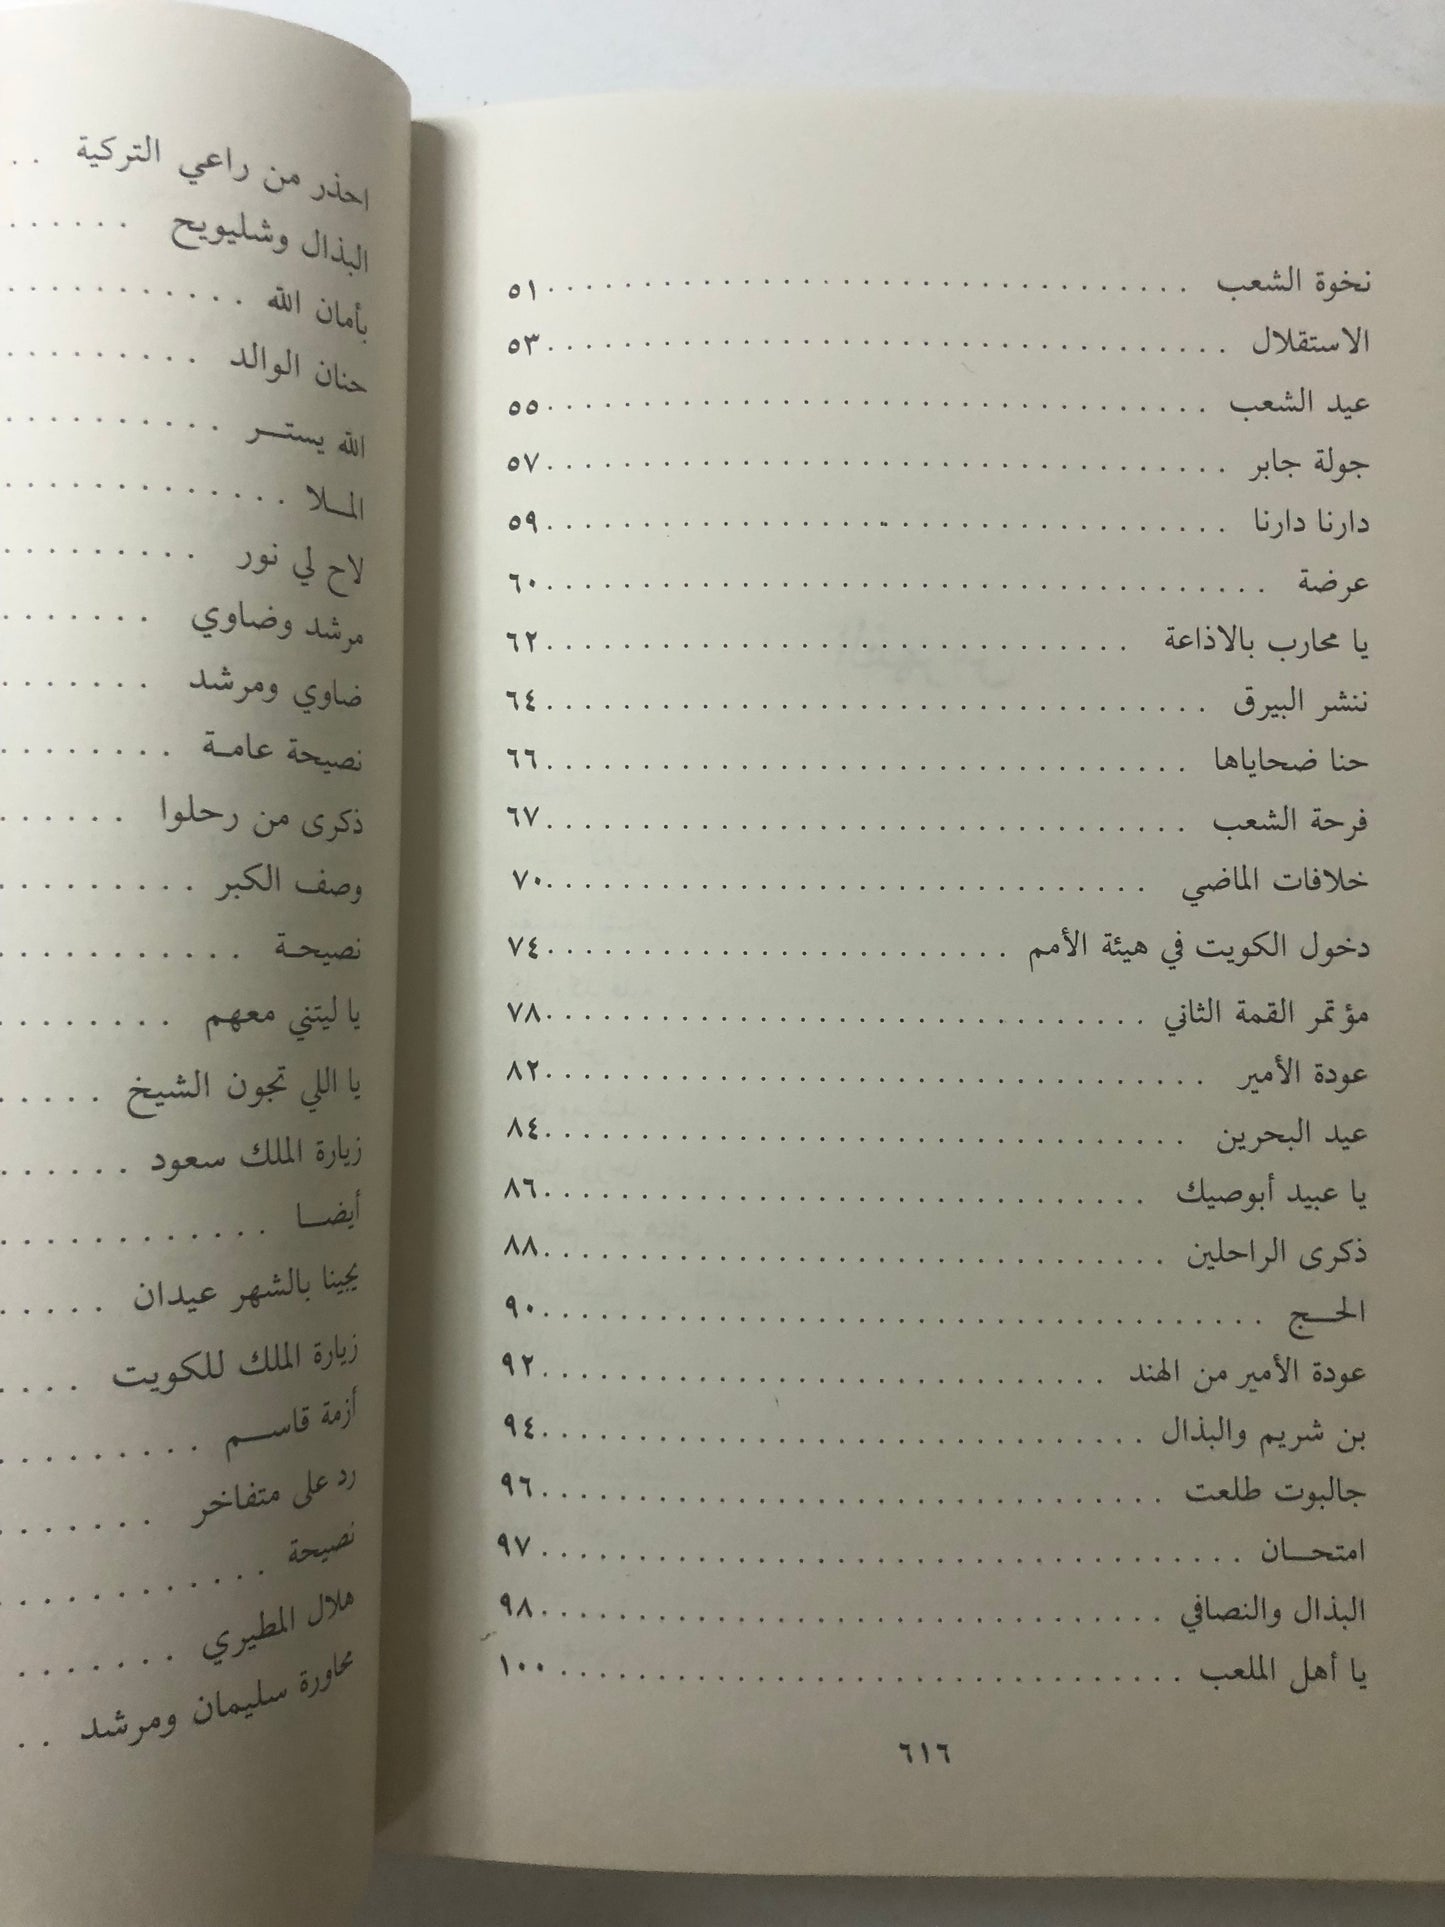 نخوة الشعب . . . . . . . . . . . . . . . . . . . . ٥١
الاستقلال . . . . . . . . . . . . . . . . . . . . ٥٣
عيد الشعب . . . . . . . . . . . . . . . . . . . . ٥٥
جولة جابر . . . . . . . . . . . . . . . . . . . . ٥٧
دارنا دارنا . . . . . . . . . . . . . . . . . . . . ٥٩
عرضة . . . . . . . . . . . . . . . . . . . . ٦٠
يا محارب بالاذاعة . . . . . . . . . . . . . . . . . . . . ٦٢
ننشر البيرق . . . . . . . . . . . . . . . . . . . . ٦٤
حنا ضحاياها . . . . . . . . . . . . . . . . . . . . ٦٦
فرحة الشعب . . . . . . . . . . . . . . . . . . . . ٦٧
خلافات الماضي . . . . . . . . . . . . . . . . . . . . ٧٠
دخول الكويت في هيئة الأمم . . . . . . . . . . . . . . . . . . . . ٧٤
مؤتمر القمة الثاني . . . . . . . . . . . . . . . . . . . . ٧٨
عودة الأمير . . . . . . . . . . . . . . . . . . . . ٨٢
عيد البحرين . . . . . . . . . . . . . . . . . . . . ٨٤
يا عبيد أبوصيك . . . . . . . . . . . . . . . . . . . . ٨٦
ذكرى الراحلين . . . . . . . . . . . . . . . . . . . . ٨٨
الحــج . . . . . . . . . . . . . . . . . . . . ٩٠
عودة الأمير من الهند . . . . . . . . . . . . . . . . . . . . ٩٢
بن شريم والبذال . . . . . . . . . . . . . . . . . . . . ٩٤
جالبوت طلعت . . . . . . . . . . . . . . . . . . . . ٩٦
امتحــان . . . . . . . . . . . . . . . . . . . . ٩٧
البذال والنصافي . . . . . . . . . . . . . . . . . . . . ٩٨
يا أهل الملعب . . . . . . . . . . . . . . . . . . . . ١٠٠
٦١٦
احذر من راعي التركية . .
البذال وشليويح . . . . . .
بأمان الله . . . . . . . . . . .
حنان الوالد . . . . . . . . .
الله يستــر . . . . . . . . . .
المــلا . . . . . . . . . . . . .
لاح لي نور . . . . . . . . .
مرشد وضاوي . . . . . . .
ضاوي ومرشد . . . . . . .
نصيحة عامـة . . . . . . . .
ذكرى من رحلوا . . . . . .
وصف الكبر . . . . . . . . .
نصيحـة . . . . . . . . . . .
يا ليتني معهم . . . . . . . .
يا اللي تجون الشيخ . . . . .
زيارة الملك سعود . . . . . .
أيضــا . . . . . . . . . . . .
يجينا بالشهر عيدان . . . . .
زيارة الملك للكويت . . . .
أزمة قاســم . . . . . . . . .
رد على متفاخر . . . . . . .
نصيحة . . . . . . . . . . . .
ملال المطيري . . . . . . .
محاورة سليمان ومرشد . .